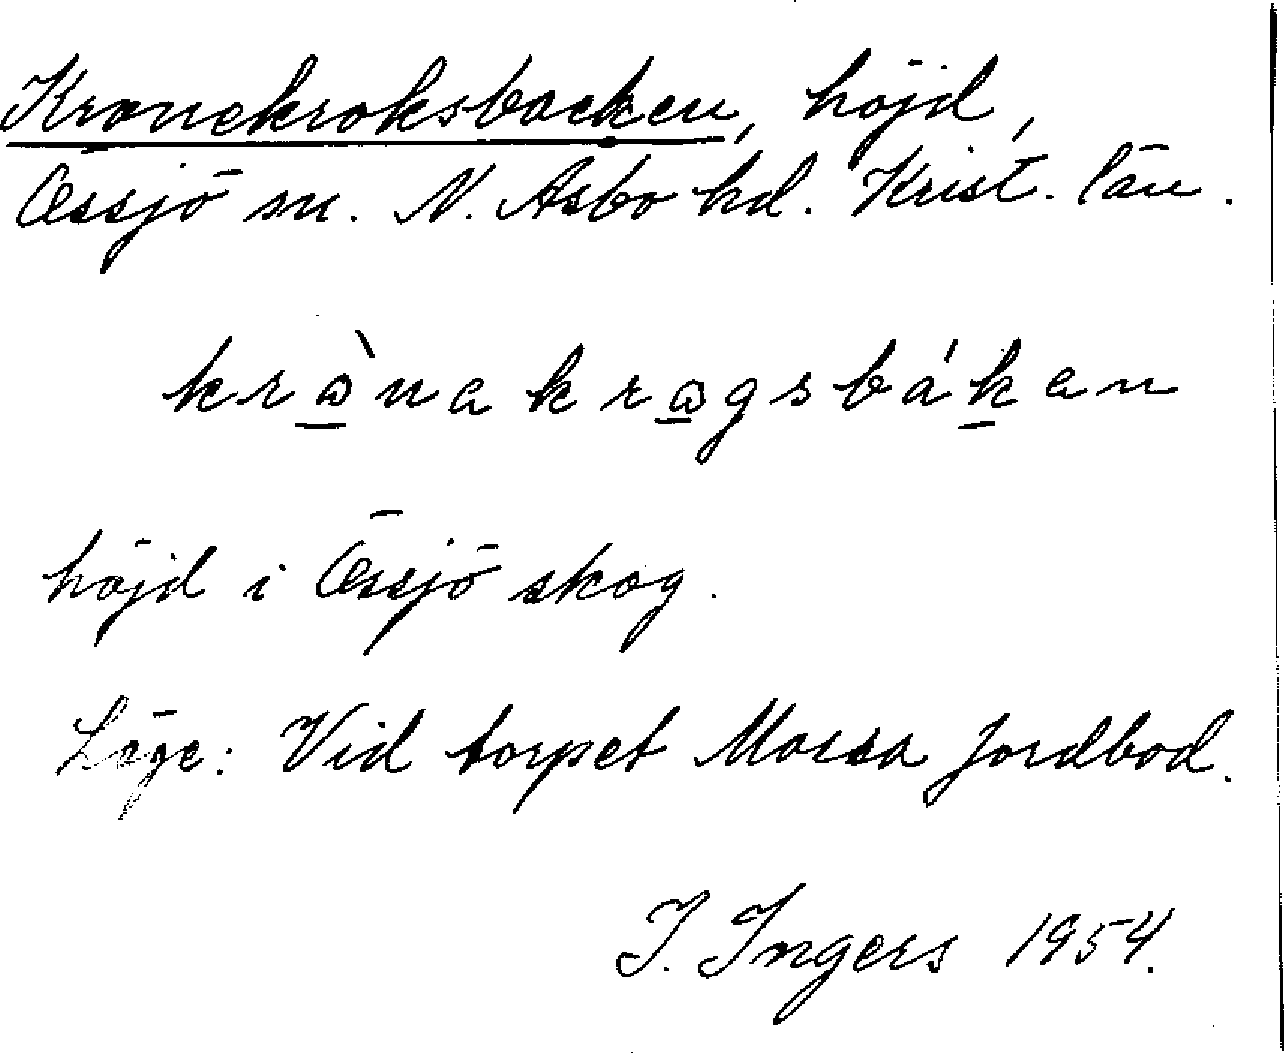 Kronekroksbacken, höjd,
Össjö sn. N. Åsbo hd. Krist. län.
krɷ̀nakrɷgsbákan
höjd i Össjö skog.
Läge: Vid torpet Massa Jordbod.
I. Ingers 1954.